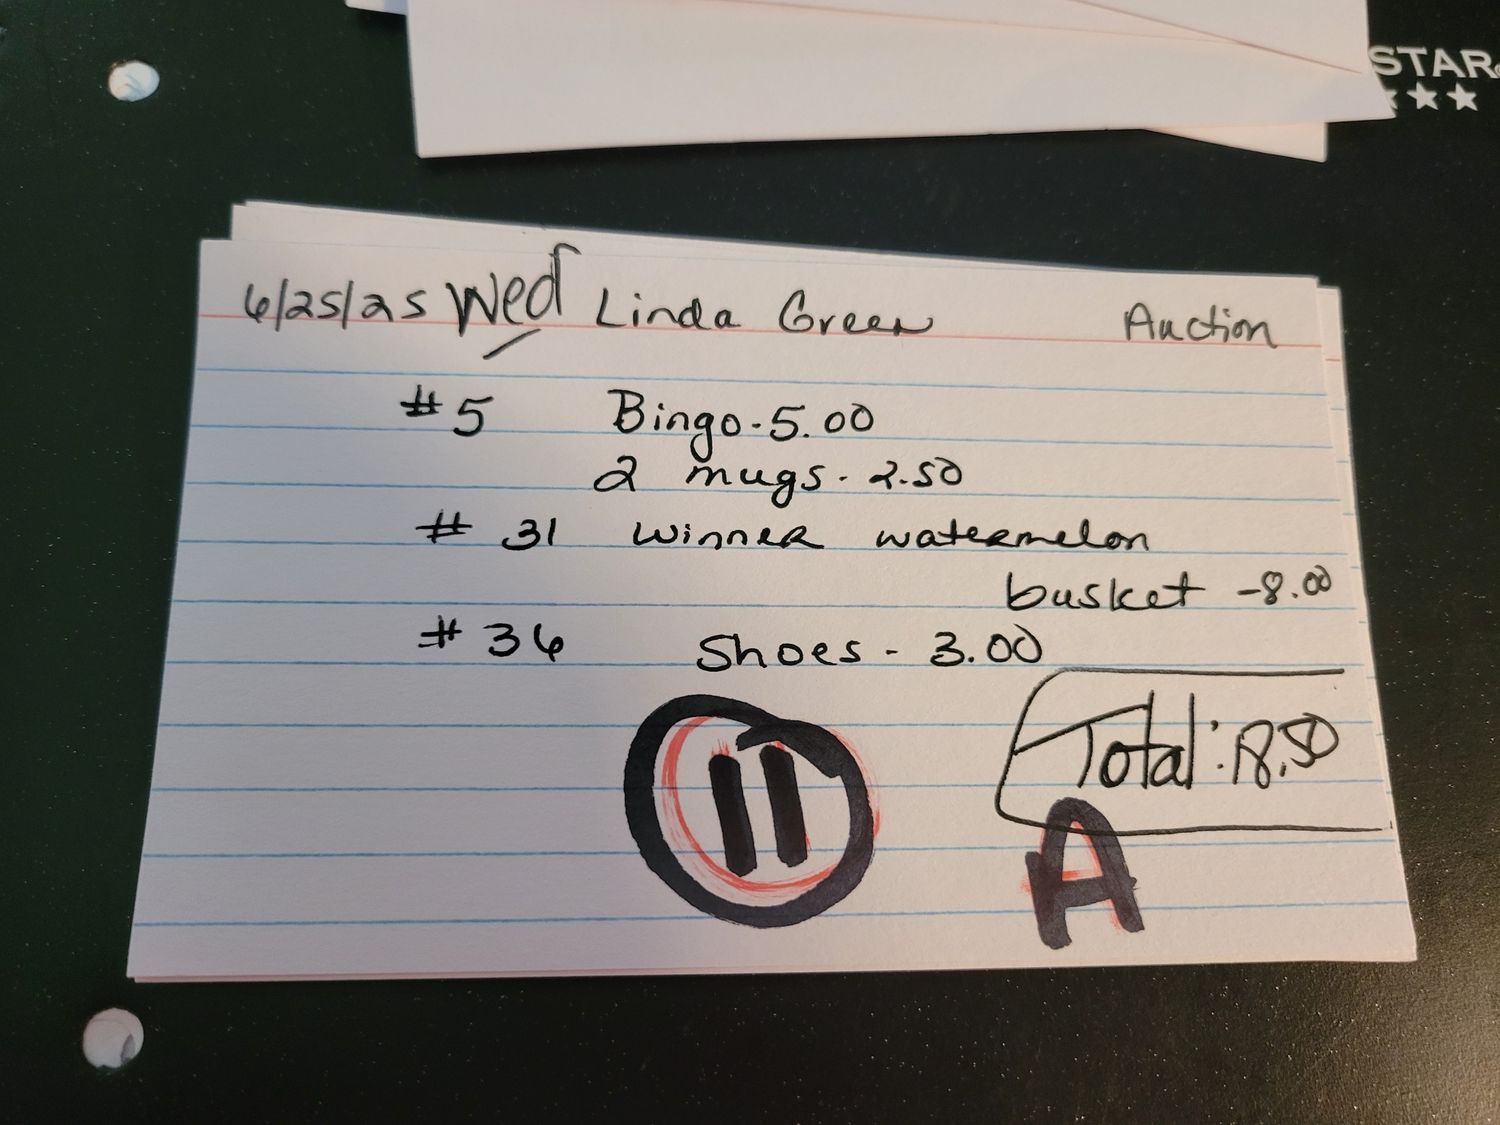 STAR
6/25/25 Wed Linda Green Auction
#5 Bingo - 5.00
2 mugs - 2.50
# 31 winner watermelon
busket - 8.00
# 36 Shoes - 3.00
Total: 18.50
11
A